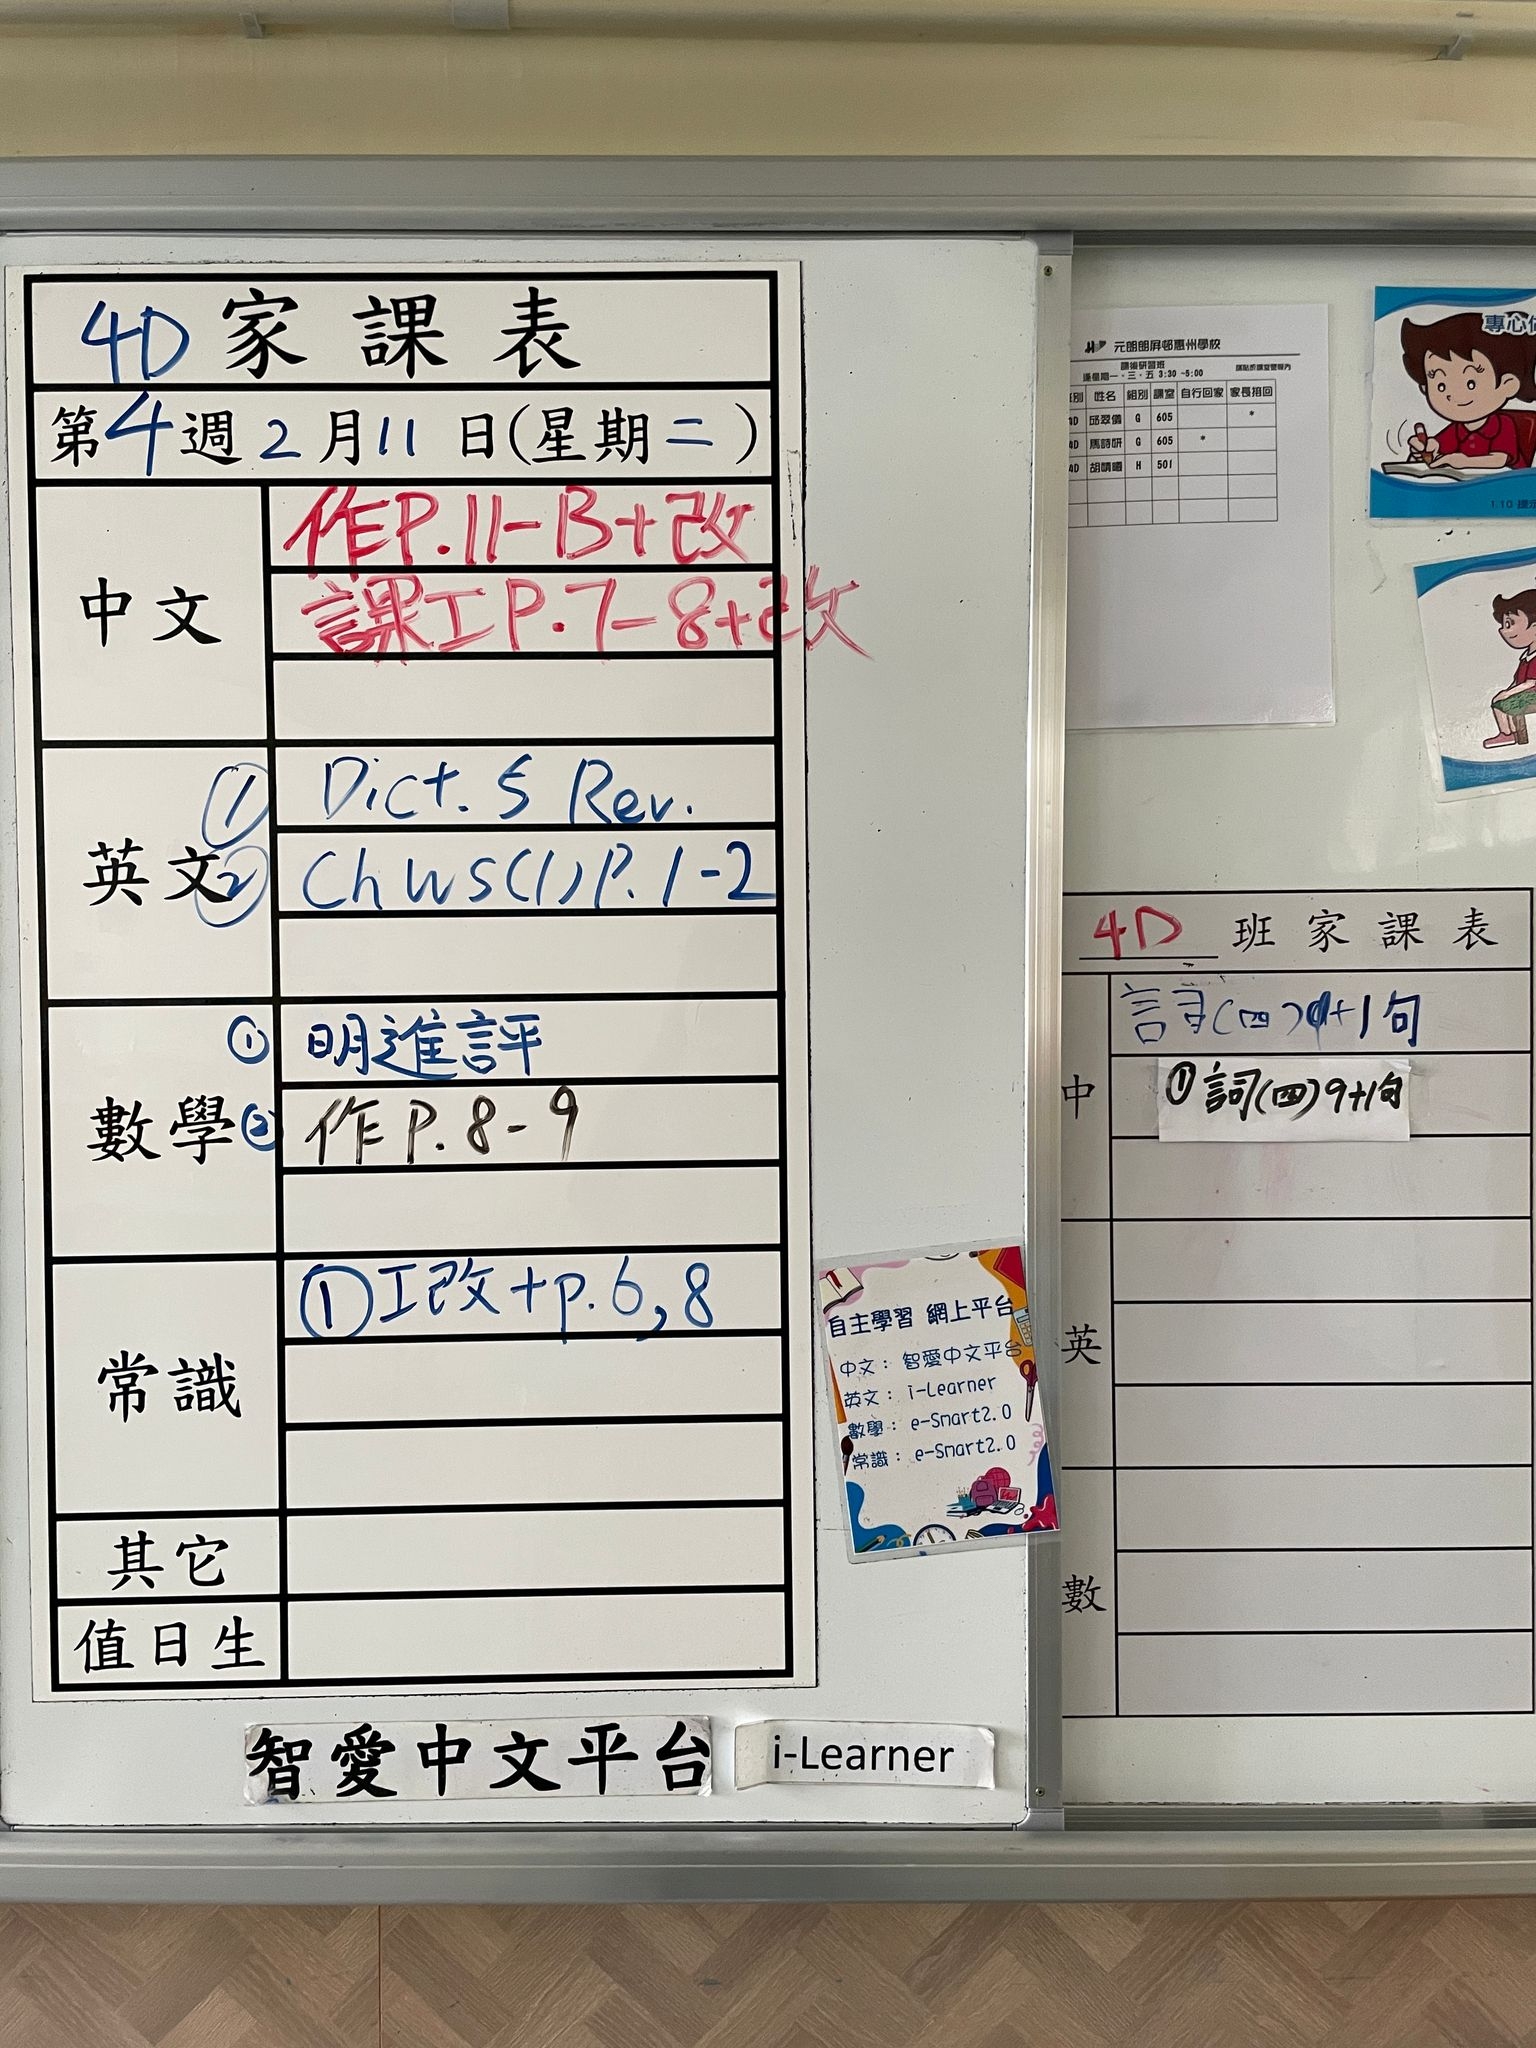 4D 家課表
第4週2月11日(星期二)
中文
作P.11-13+改
課工P.7-8+改
英文
① Dict. 5 Rev.
② Ch WS(1)P.1-2
數學
① 明進評
② 作P.8-9
常識
①工改+p.6,8
其它
值日生
智愛中文平台
i-Learner
自主學習 網上平台
中文: 智愛中文平台
英文: i-Learner
數學: e-Smart2.0
常識: e-Smart2.0
元朗朗屏邨惠州學校
課後研習班
逢星期一、三、五 3:30 ~5:00
別 姓名 組別 課室 自行回家 家長接回
4D 邱翠儀 G 605 *
4D 馬詩研 G 605 *
4D 胡晴曦 H 501
專心
1.10
4D 班家課表
中
詞(四)9+1句
①詞(四)9+1句
英
數